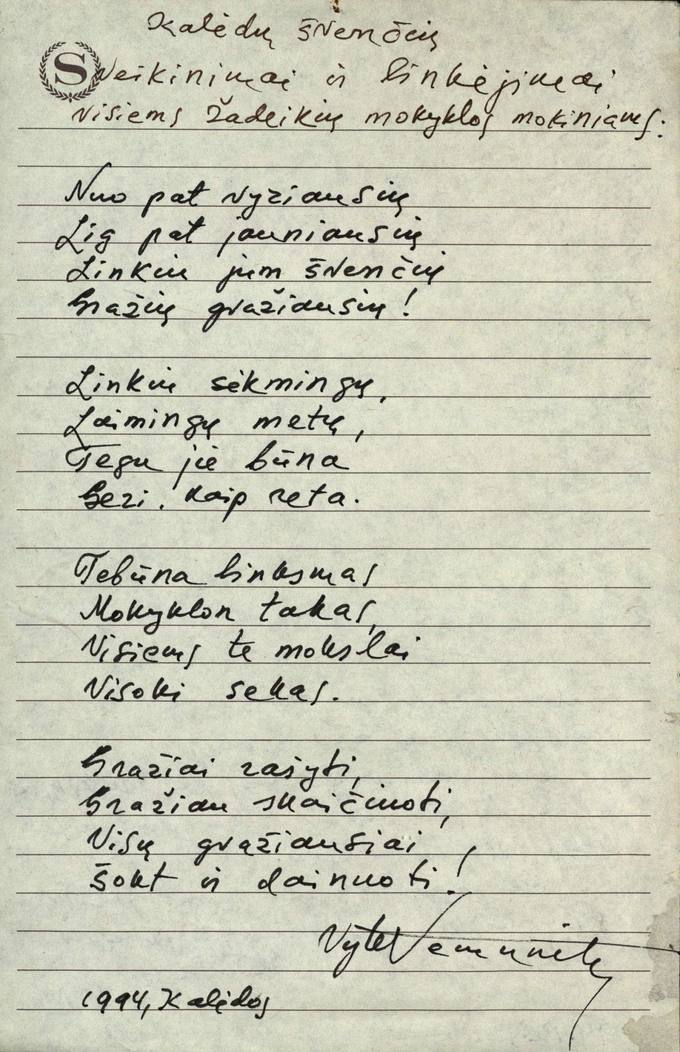 Kalėdų švenčių
Sveikinimai ir linkėjimai
visiems Žadeikių mokyklos mokiniams:
Nuo pat vyriausių
Lig pat jauniausių
Linkiu jum švenčių
Gražių gražiausių!
Linkiu sėkmingų,
Laimingų metų,
Tegu jie būna
Geri, kaip reta.
Tebūna linksmas
Mokyklon takas,
Visiems te mokslai
Visoki sekas.
Gražiai rašyti,
Gražiau skaičiuoti,
Visų gražiausiai
Šokt ir dainuoti!
Vytė Nemunėlis
1994, Kalėdos